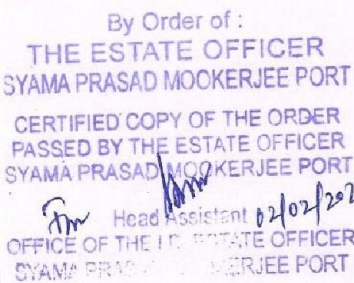 By Order of :
THE ESTATE OFFICER
SYAMA PRASAD MOOKERJEE PORT
CERTIFIED COPY OF THE ORDER
PASSED BY THE ESTATE OFFICER
SYAMA PRASAD MOOKERJEE PORT
Head Assistant 02/02/202
OFFICE OF THE ESTATE OFFICER
SYAMA PRASAD MOOKERJEE PORT